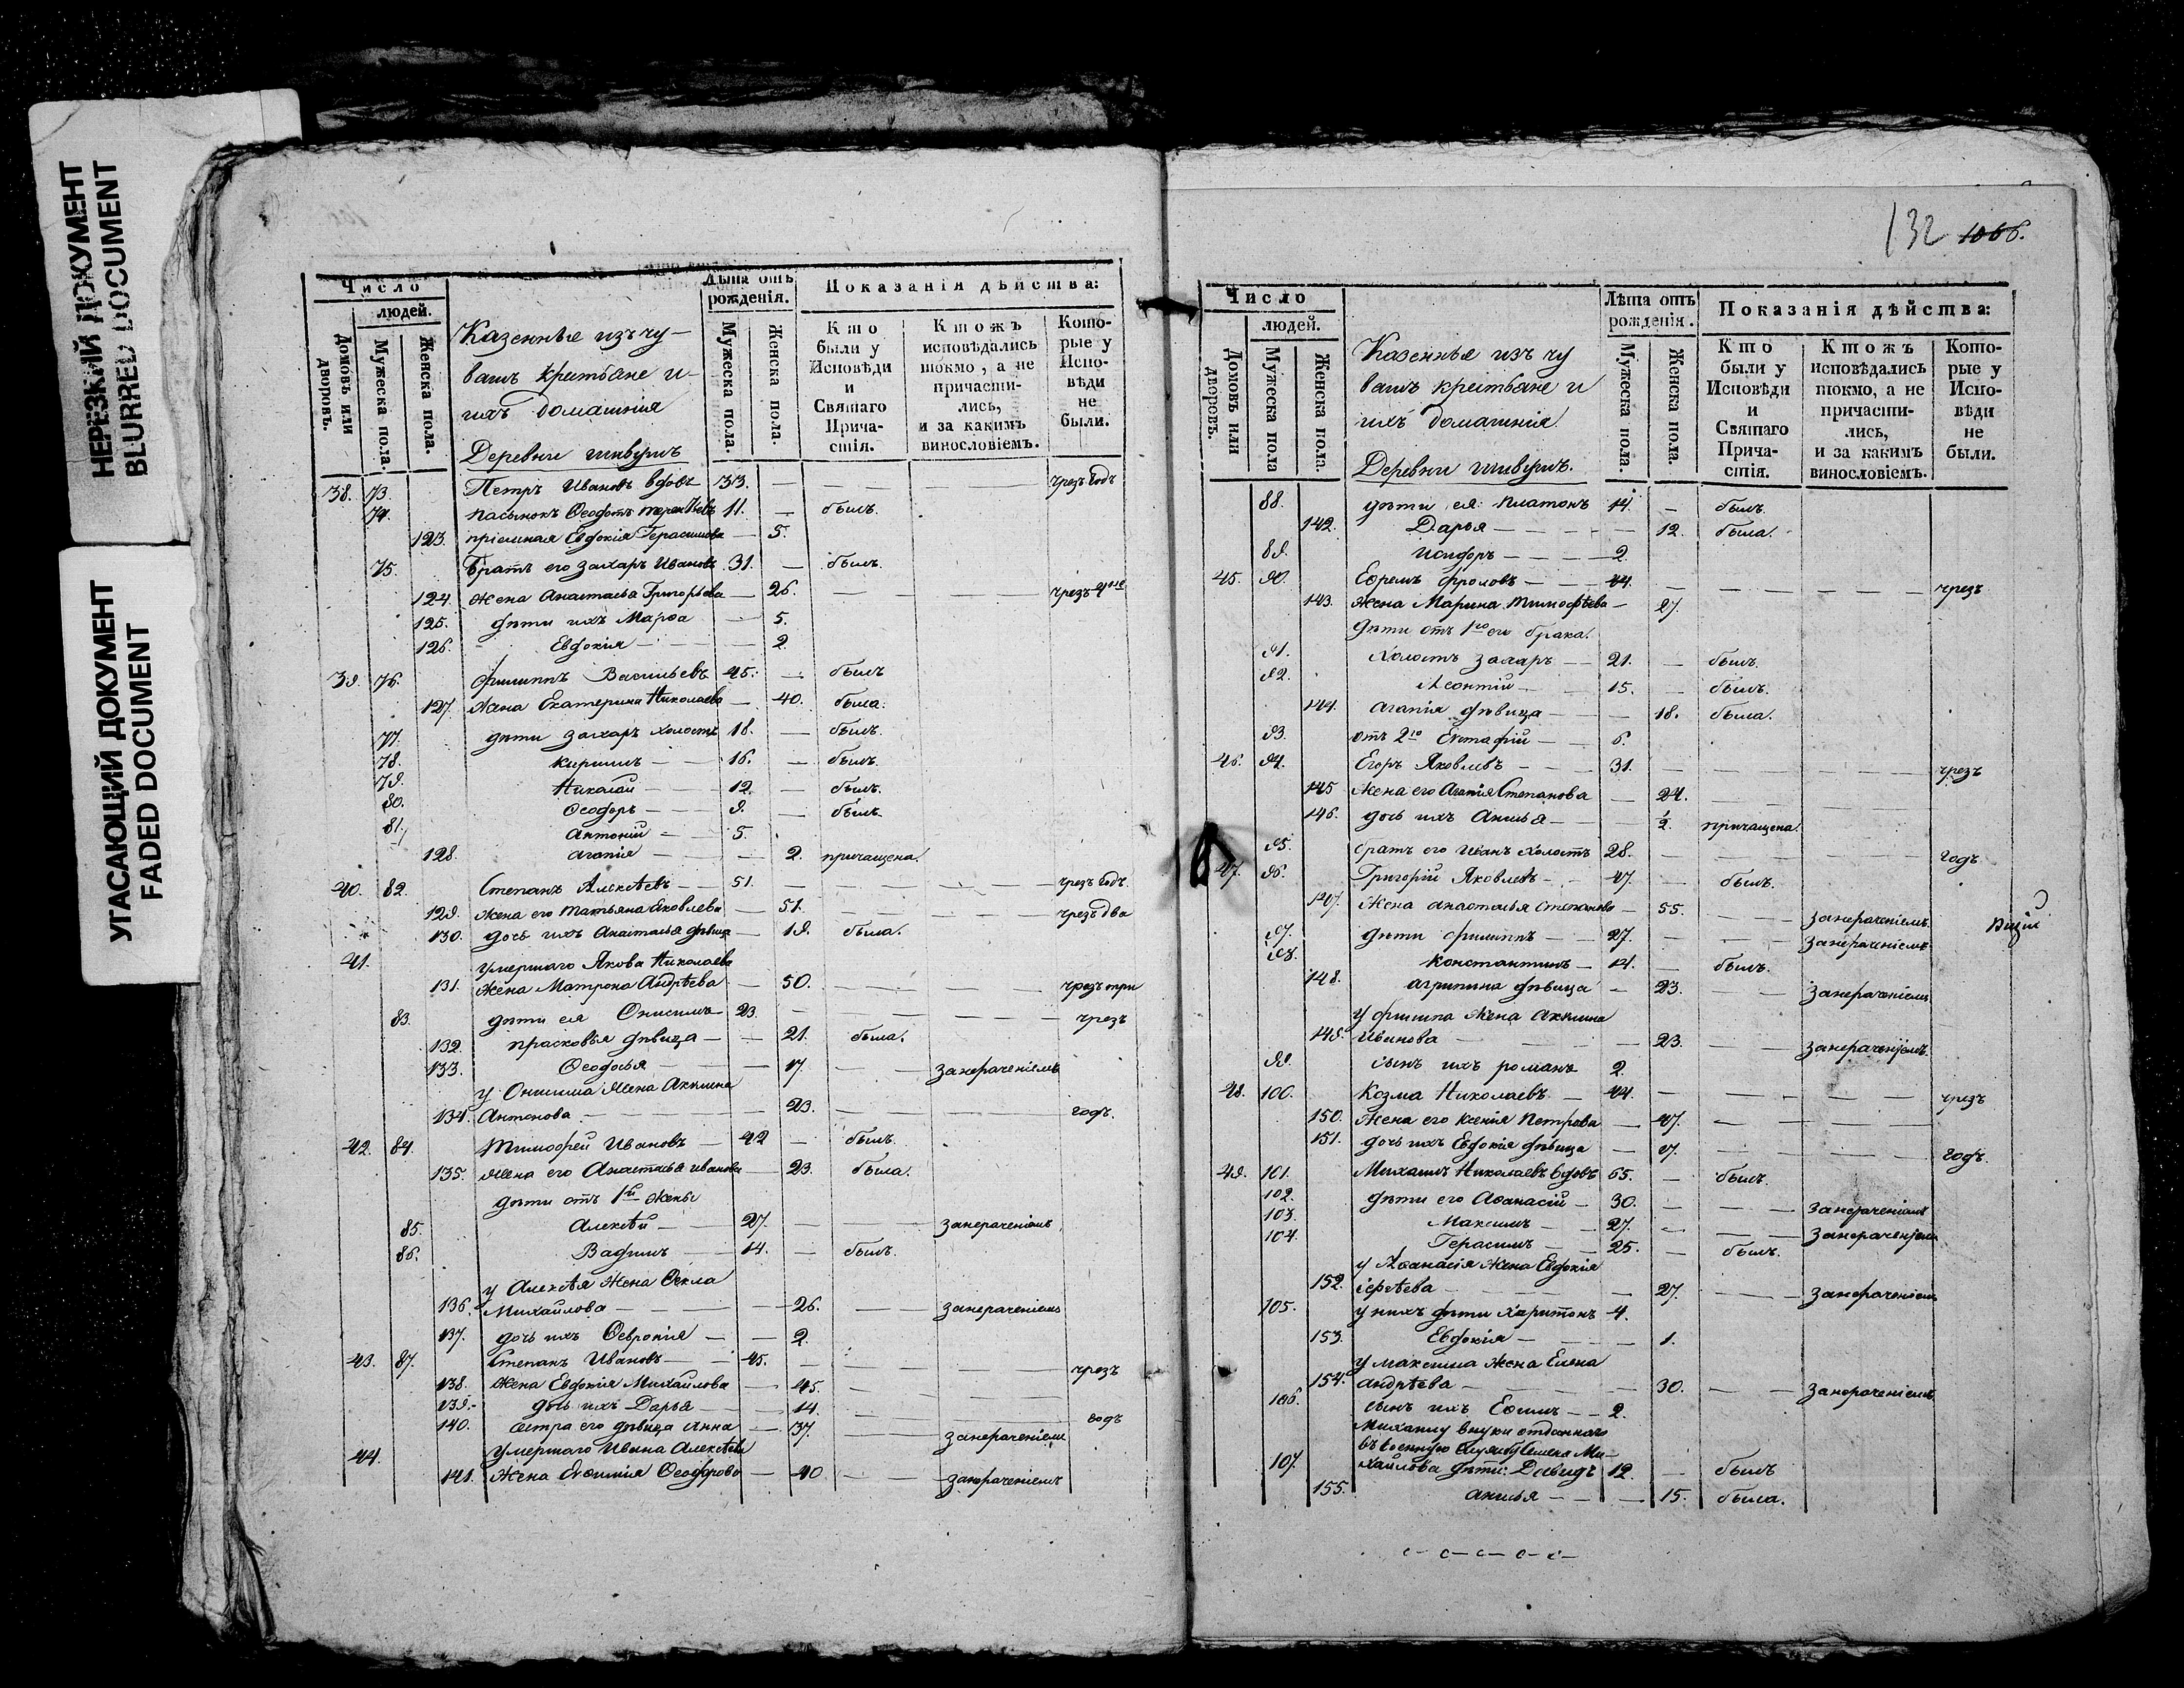 НЕРЕЗКИЙ ДОКУМЕНТ
BLURRED DOCUMENT
УГАСАЮЩИЙ ДОКУМЕНТ
FADED DOCUMENT
Число
людей.
Домовъ или дворовъ.
Мужеска пола.
Женска пола.
Казенные изъ чу-
вашъ крестьяне и
ихъ домашнія
Деревни
Лѣта отъ рожденія.
Мужеска пола.
Женска пола.
Показанія дѣйства:
Кто были у Исповѣди и Святаго Причастія.
Ктожъ исповѣдались токмо, а не причастились, и за какимъ винословіемъ.
Которые у Исповѣди не были.
38. 73. Петръ Ивановъ вдовъ 33. — — — чрезъ годъ
74. пасынокъ Ѳеодотъ 11. — былъ.
123. пріемная Евдокія Герасимова — 5.
75. Братъ его Захаръ Ивановъ 31. — былъ.
124. жена Анастасья Григорьева — 26. — — чрезъ
125. дѣти ихъ Марѳа — 5.
126. Евдокія — 2.
39. 76. Филиппъ Васильевъ 45. — былъ
127. жена Екатерина Николаева — 40. была.
77. дѣти Захаръ холостъ 18. — былъ.
78. Кирилъ — 16. — былъ.
79. Николай — 12. — былъ.
80. Ѳеодоръ — 9. — былъ.
81. Антоній — 5.
128. Агапія — — 2. причащена.
40. 82. Степанъ Алексѣевъ — 51. — — — чрезъ годъ.
129. жена его Татьяна Яковлева — 51. — — чрезъ два
130. дочь ихъ Анастасья дѣвица — 19. была.
41. умершаго Якова Николаева
131. жена Матрона Андрѣева — 50. — — — чрезъ три
83. дѣти ея Онисимъ 23. — — — чрезъ
132. Прасковья дѣвица — — 21. была.
133. Ѳеодосья — — 17. — — занераченіемъ
у Онисима жена Акилина
134. Антонова — — 23. — годъ.
42. 84. Тимофей Ивановъ — 42 — былъ.
135. жена его Анастасья Иванова — 23. была.
дѣти отъ 1й жены
85. Алексѣй — 27. — — занераченіемъ
86. Вафилъ — 14. — былъ.
у Алексѣя жена Ѳекла
136. Михайлова — — 26. — занераченіемъ
137. дочь ихъ Ѳевронія — — 2.
43. 87. Степанъ Ивановъ — 45. — — — чрезъ
138. жена Евдокія Михайлова — 45. — —
139. дочь ихъ Дарья — — 14. — — годъ
140. сестра его дѣвица Анна — 37. — занераченіемъ
44. умершаго Ивана Алексѣева
141. жена Евфимія Ѳеодорова — 40 — занераченіемъ
132 1066.
Число
людей.
Домовъ или дворовъ.
Мужеска пола
Женска пола.
Казенные изъ чу
вашъ крестьяне и
ихъ домашнія.
Деревни
Лѣта отъ рожденія.
Мужеска пола.
Женска пола.
Показанія дѣйства:
Кто были у Исповѣди и Святаго Причастія.
Ктожъ исповѣдались токмо, а не причастились, и за какимъ винословіемъ.
Которые у Исповѣди не были.
88. дѣти ея: Платонъ 14. — былъ.
142. Дарья — — 12. была.
89. Исидоръ — — 2.
45. 90. Ефремъ Фроловъ — 44. — — — чрезъ
143. жена Марина Тимофѣева — 27.
дѣти отъ 1го его брака.
91. холостъ Захаръ — 21. — былъ.
92. Леонтій — 15. — былъ.
144. Агапія дѣвица — — 18. была.
93. отъ 2го Евтафій — 6.
46. 94. Егоръ Яковлевъ — 31. — — — чрезъ
145 жена его Агапія Степанова — 24. — —
146. дочь ихъ Анисья — 2. причащена.
95. братъ его Иванъ холостъ 28. — — — годъ
47. 96. Григорій Яковлевъ — 47. — былъ.
147. жена Анастасья Степанова — 55. — — занераченіемъ.
97. дѣти Филиппъ — 27. — — занераченіемъ
98. Константинъ — 14. — былъ.
148. Агрипина дѣвица — 23. — — занераченіемъ
у Филипа жена Акилина
149. Иванова — — 23. — — занераченіемъ.
99. сынъ ихъ Романъ 2.
48. 100. Козма Николаевъ — 44. — — — чрезъ
150. жена его Ксенія Петрова — 47. — —
151. дочь ихъ Евдокія дѣвица — 17. — — годъ.
49. 101. Михаилъ Николаевъ вдовъ 65. — былъ.
102. дѣти его Аѳанасій — 30. — — занераченіемъ
103. Максимъ — 27. — — занераченіемъ
104. Герасимъ — 25. — былъ.
у Аѳанасія жена Евдокія
152. Сергѣева — — 27. — — занераченіемъ
105. у нихъ дѣти Харитонъ 4.
153. Евдокія — — 1.
у Максима жена Елена
154. Андрѣева — — 30. — — занераченіемъ
106. сынъ ихъ Ефимъ — 2.
Михаилу внуки отданнаго
въ военную службу Семена Ми-
107. хайлова дѣти: Давидъ 12. — былъ
155. Анисья — — 15. была.